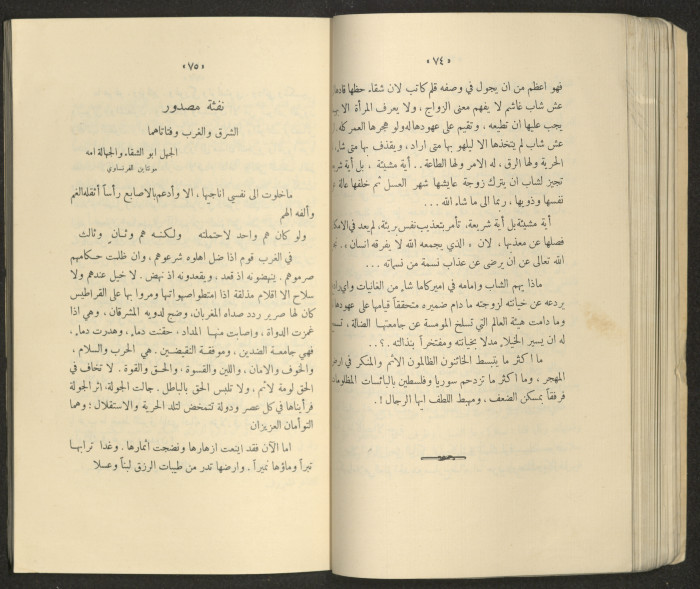 «٧٤»
فهو اعظم من ان يجول في وصفه قلم كاتب لان شقاء حظها قادها
عش شاب غاشم لا يفهم معنى الزواج ، ولا يعرف المرأة الا
يجب عليها ان تطيعه ، وتقيم على عهودها له ولو هجرها العمر كله
عش شاب لم يتخذها الا ليلهو بها متى اراد ، ويقذف بها متى شاء
الحرية ولها الرق ، له الامر ولها الطاعة .. أية مشيئة ، بل أية
تجيز لشاب ان يترك زوجة عايشها شهر العسل ثم خلفها عالة
نفسها وذويها ، ربما الى ما شاء الله ...
أية مشيئة بل أية شريعة ، تأمر بتعذيب نفس بريئة ، لم يعد في
فصلها عن معذبها ، لان « الذي يجمعه الله لا يفرقه انسان » .
الله تعالى عن ان يرضى عن عذاب نسمة من نسماته ...
ماذا يهم الشاب وامامه في اميركا ما شاء من الغانيات
يردعه عن خيانته لزوجته ما دام ضميره متحققاً قيامها على عهودها
وما دامت هيئة العالم التي تسلخ المومسة عن جامعتها الضالة ،
له ان يسير الخيلاء مدلا بخيانته ومفتخراً بنذالته .؟..
ما اكثر ما يتبسط الخائنون الظالمون الاثم والمنكر في
المهجر ، وما اكثر ما تزدحم سوريا وفلسطين بالبائسات
فرفقاً بمسكن الضعف ، ومهبط اللطف ايها الرجال !.
«٧٥»
نفثة مصدور
الشرق والغرب وفتاتاهما
الجهل ابو الشقاء والجهالة امه
مونتاين الفرنساوي
ما خلوت الى نفسي اناجيها ، الا وأدعم بالاصابع رأساً أثقله الغم
وألفه الهم
ولو كان هم واحد لاحتملته ولكنه هم وثان وثالث
في الغرب قوم اذا ضل اهلوه شرعوهم ، وان ظلت حكامهم
صرموهم . ينهضونه اذ قعد ، ويقعدونه اذ نهض . لا خيل عندهم ولا
سلاح الا اقلام مذلقة اذا امتطوا صهواتها ومروا بها على القراطيس
كان لها صرير ردد صداه المغربان ، وضج لدويه المشرقان ، وهي اذا
غمزت الدواة ، واصابت منها المداد ، حقنت دماء ، وهدرت دماء ،
فهي جامعة الضدين ، وموفقة النقيضين . هي الحرب والسلام ،
والخوف والامان ، واللين والقسوة ، والحق والقوة . لا تخاف في
الحق لومة لائم ، ولا تلبس الحق بالباطل . جالت الجولة ، اثر الجولة
فرأيناها في كل عصر ودولة تتمخض لتلد الحرية والاستقلال ؛ وهما
التوأمان العزيزان
اما الآن فقد اينعت ازهارها ونضجت اثمارها . وغدا ترابها
تبراً وماؤها نميراً . وارضها تدر من طيبات الرزق لبناً وعسلا